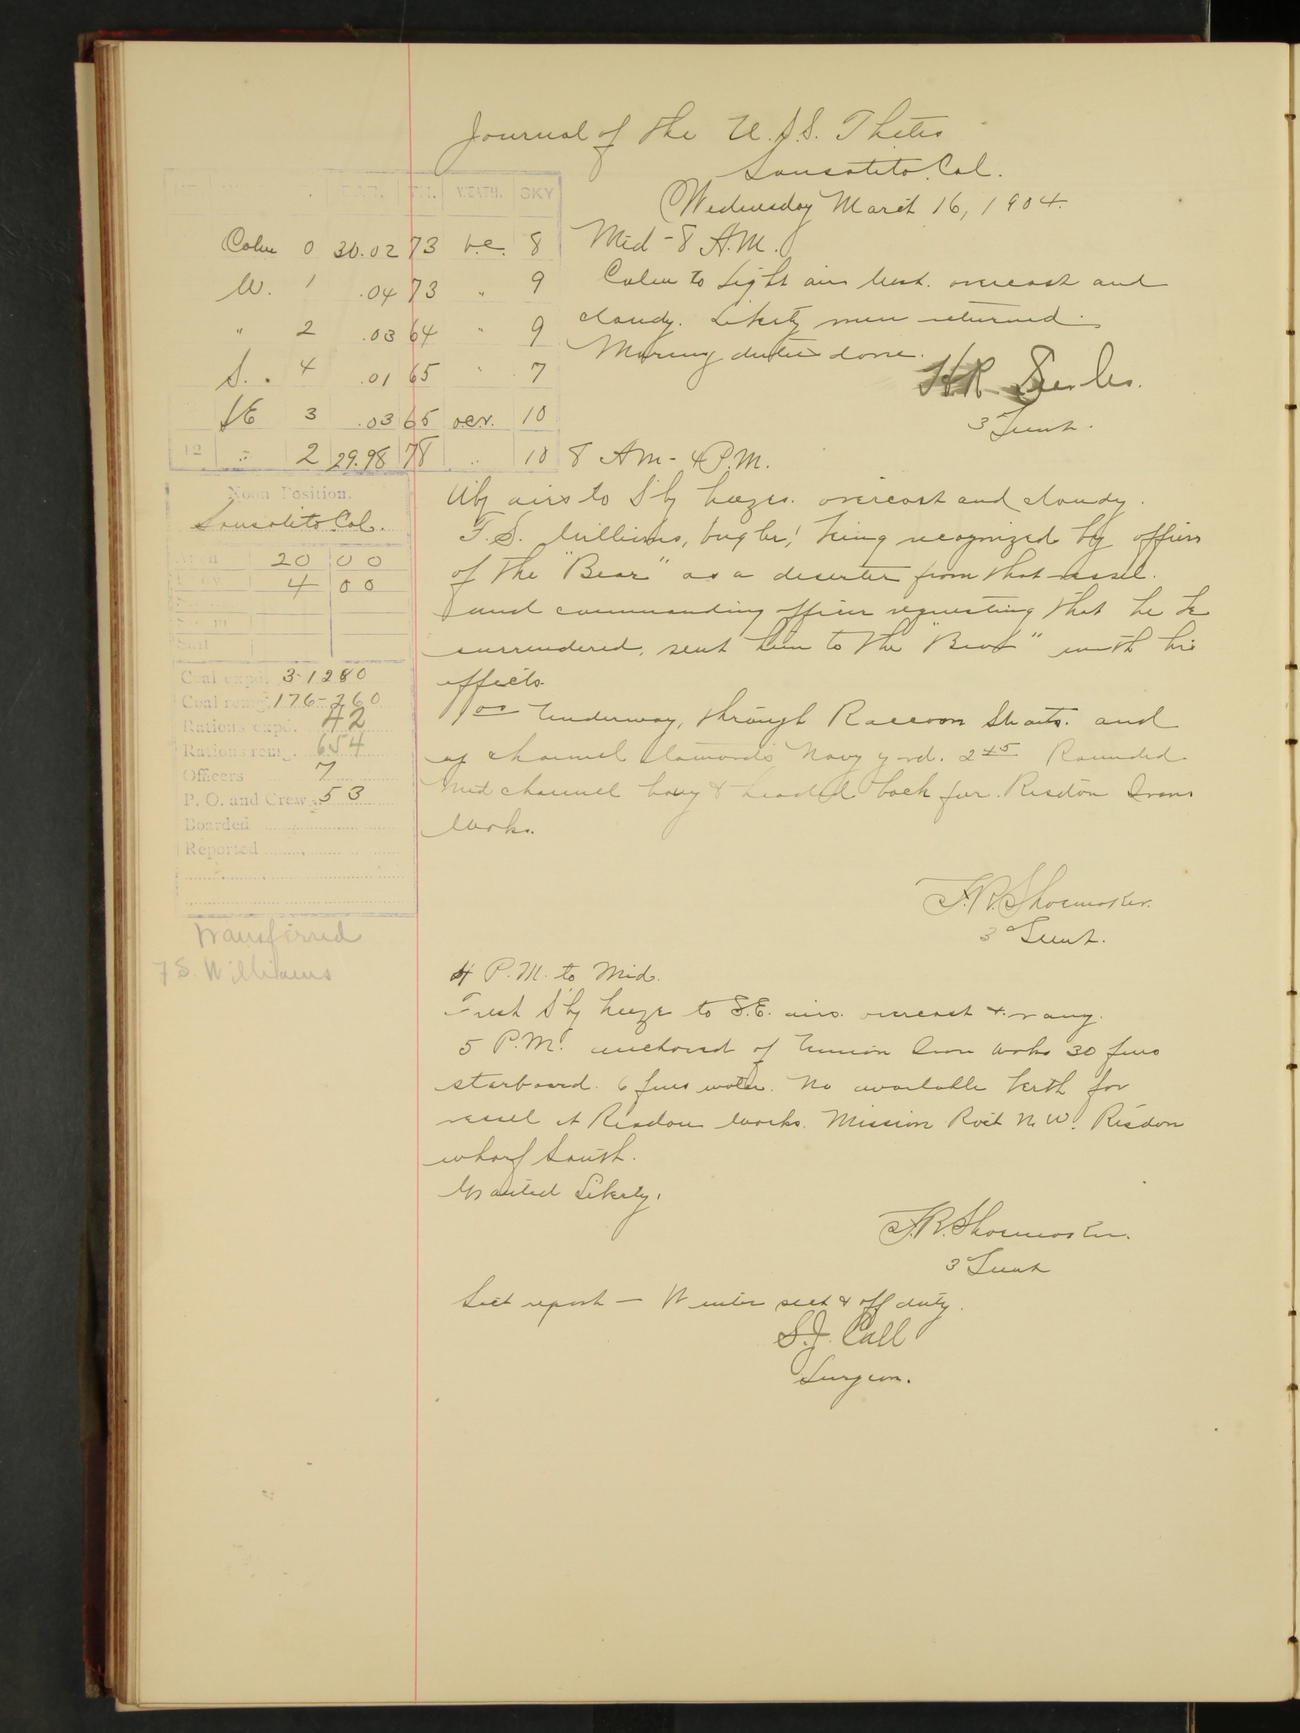 Journal of the U.S.S. Thetis
Sausalito, Cal.
Wednesday March 16, 1904.
BAR. TH. WEATH. SKY
Calm 0 30.02 73 b.c. 8
W. 1 .04 73 " 9
" 2 .03 64 " 9
S. 4 .01 65 " 7
SE 3 .03 65 ocr. 10
12 " 2 29.98 78 " 10
Noon Position.
Sausalito Cal.
20 00
4 00
Sail
Coal expd. 3-1280
Coal remg. 176-260
Rations expd. 42
Rations remg. 654
Officers 7
P. O. and Crew 53
Boarded
Reported
Transferred
F S. Williams
Mid - 8 A.M.
Calm to light airs West. overcast and
cloudy. Liberty men returned.
Morning duties done.
H.R.
3 Lieut.
8 AM - 4 P.M.
W'ly airs to S'ly breezes. overcast and cloudy.
F. S. Williams, bugler, being recognized by officers
of the "Bear" as a deserter from that vessel.
and commanding officer requesting that he be
surrendered, sent him to the "Bear" with his
effects.
1 00 Underway, through Raccoon Straits. and
up channel towards Navy yard. 2 45 Rounded
mid channel buoy & headed back for Risdon Iron
Works.
F.R. Shoemaker.
3 Lieut.
4 P.M. to Mid.
Fresh S'ly breeze to S.E. airs. overcast & rainy.
5 P.M. anchored off Union Iron Works 30 fms
starboard. 6 fms water. No available berth for
vessel at Risdon Works. Mission Rock N.W. Risdon
wharf South.
Granted Liberty.
F.R. Shoemaker.
3 Lieut
Sick report — Winter sick & off duty.
S.J. Call
Surgeon.